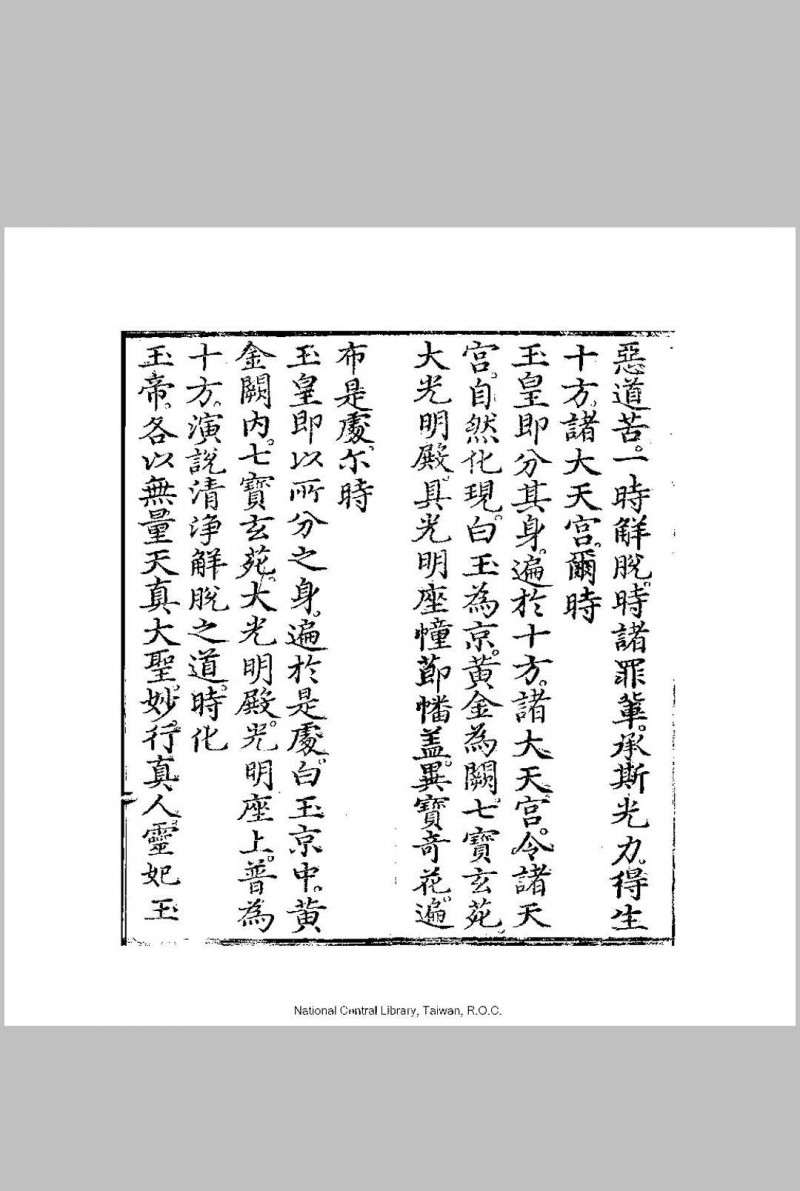 惡道苦。一時解脫。時諸罪輩。承斯光力。得生
十方。諸大天宮。爾時
玉皇即分其身。遍於十方。諸大天宮。令諸天
宮。自然化現。白玉為京。黃金為闕。七寶玄苑。
大光明殿。具光明座幢節幡盖。異寶奇花。遍
布是處。尒時
玉皇即以所分之身。遍於是處。白玉京中。黃
金闕內。七寶玄苑。大光明殿。光明座上。普為
十方。演說清淨解脫之道。時化
玉帝。各以無量天真大聖。妙行真人靈妃玉
National Central Library, Taiwan, R.O.C.